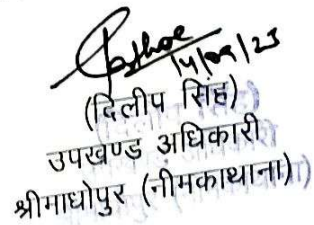 14/09/23
(दिलीप सिंह)
उपखण्ड अधिकारी
श्रीमाधोपुर (नीमकाथाना)